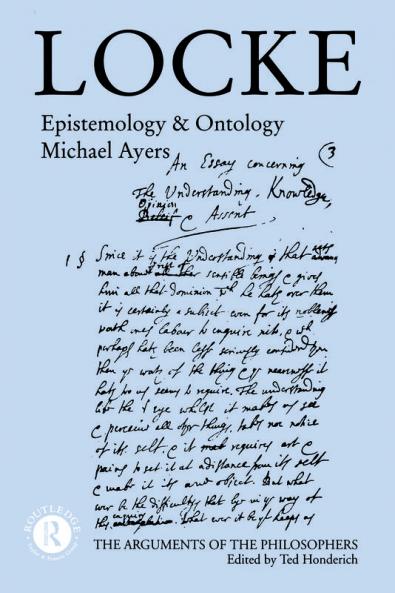 LOCKE
Epistemology & Ontology
Michael Ayers
An Essay concerning 3
The Understanding, Knowledge,
Opinion
Belief & Assent.
1 § Since it is the Understanding that sets
man above all other sensible beings & gives
him all that dominion wch he hath over them
it is certainly a subject even for its noblenesse
worth our labour to enquire into, & wch
perhaps hath been less seriously considerd
then ye ways of the thing & ye nearnesse it
hath to us seems to require. The understanding
like the eye whilst it makes us see
& perceive all other things, takes noe notice
of its self, & it requires art &
pains to set it at a distance from its self
& make it its owne object. But what
ever be the difficultys that lye in ye way of
this enquiry. What ever it be yt keeps us
ROUTLEDGE
R
Taylor & Francis Group
THE ARGUMENTS OF THE PHILOSOPHERS
Edited by Ted Honderich